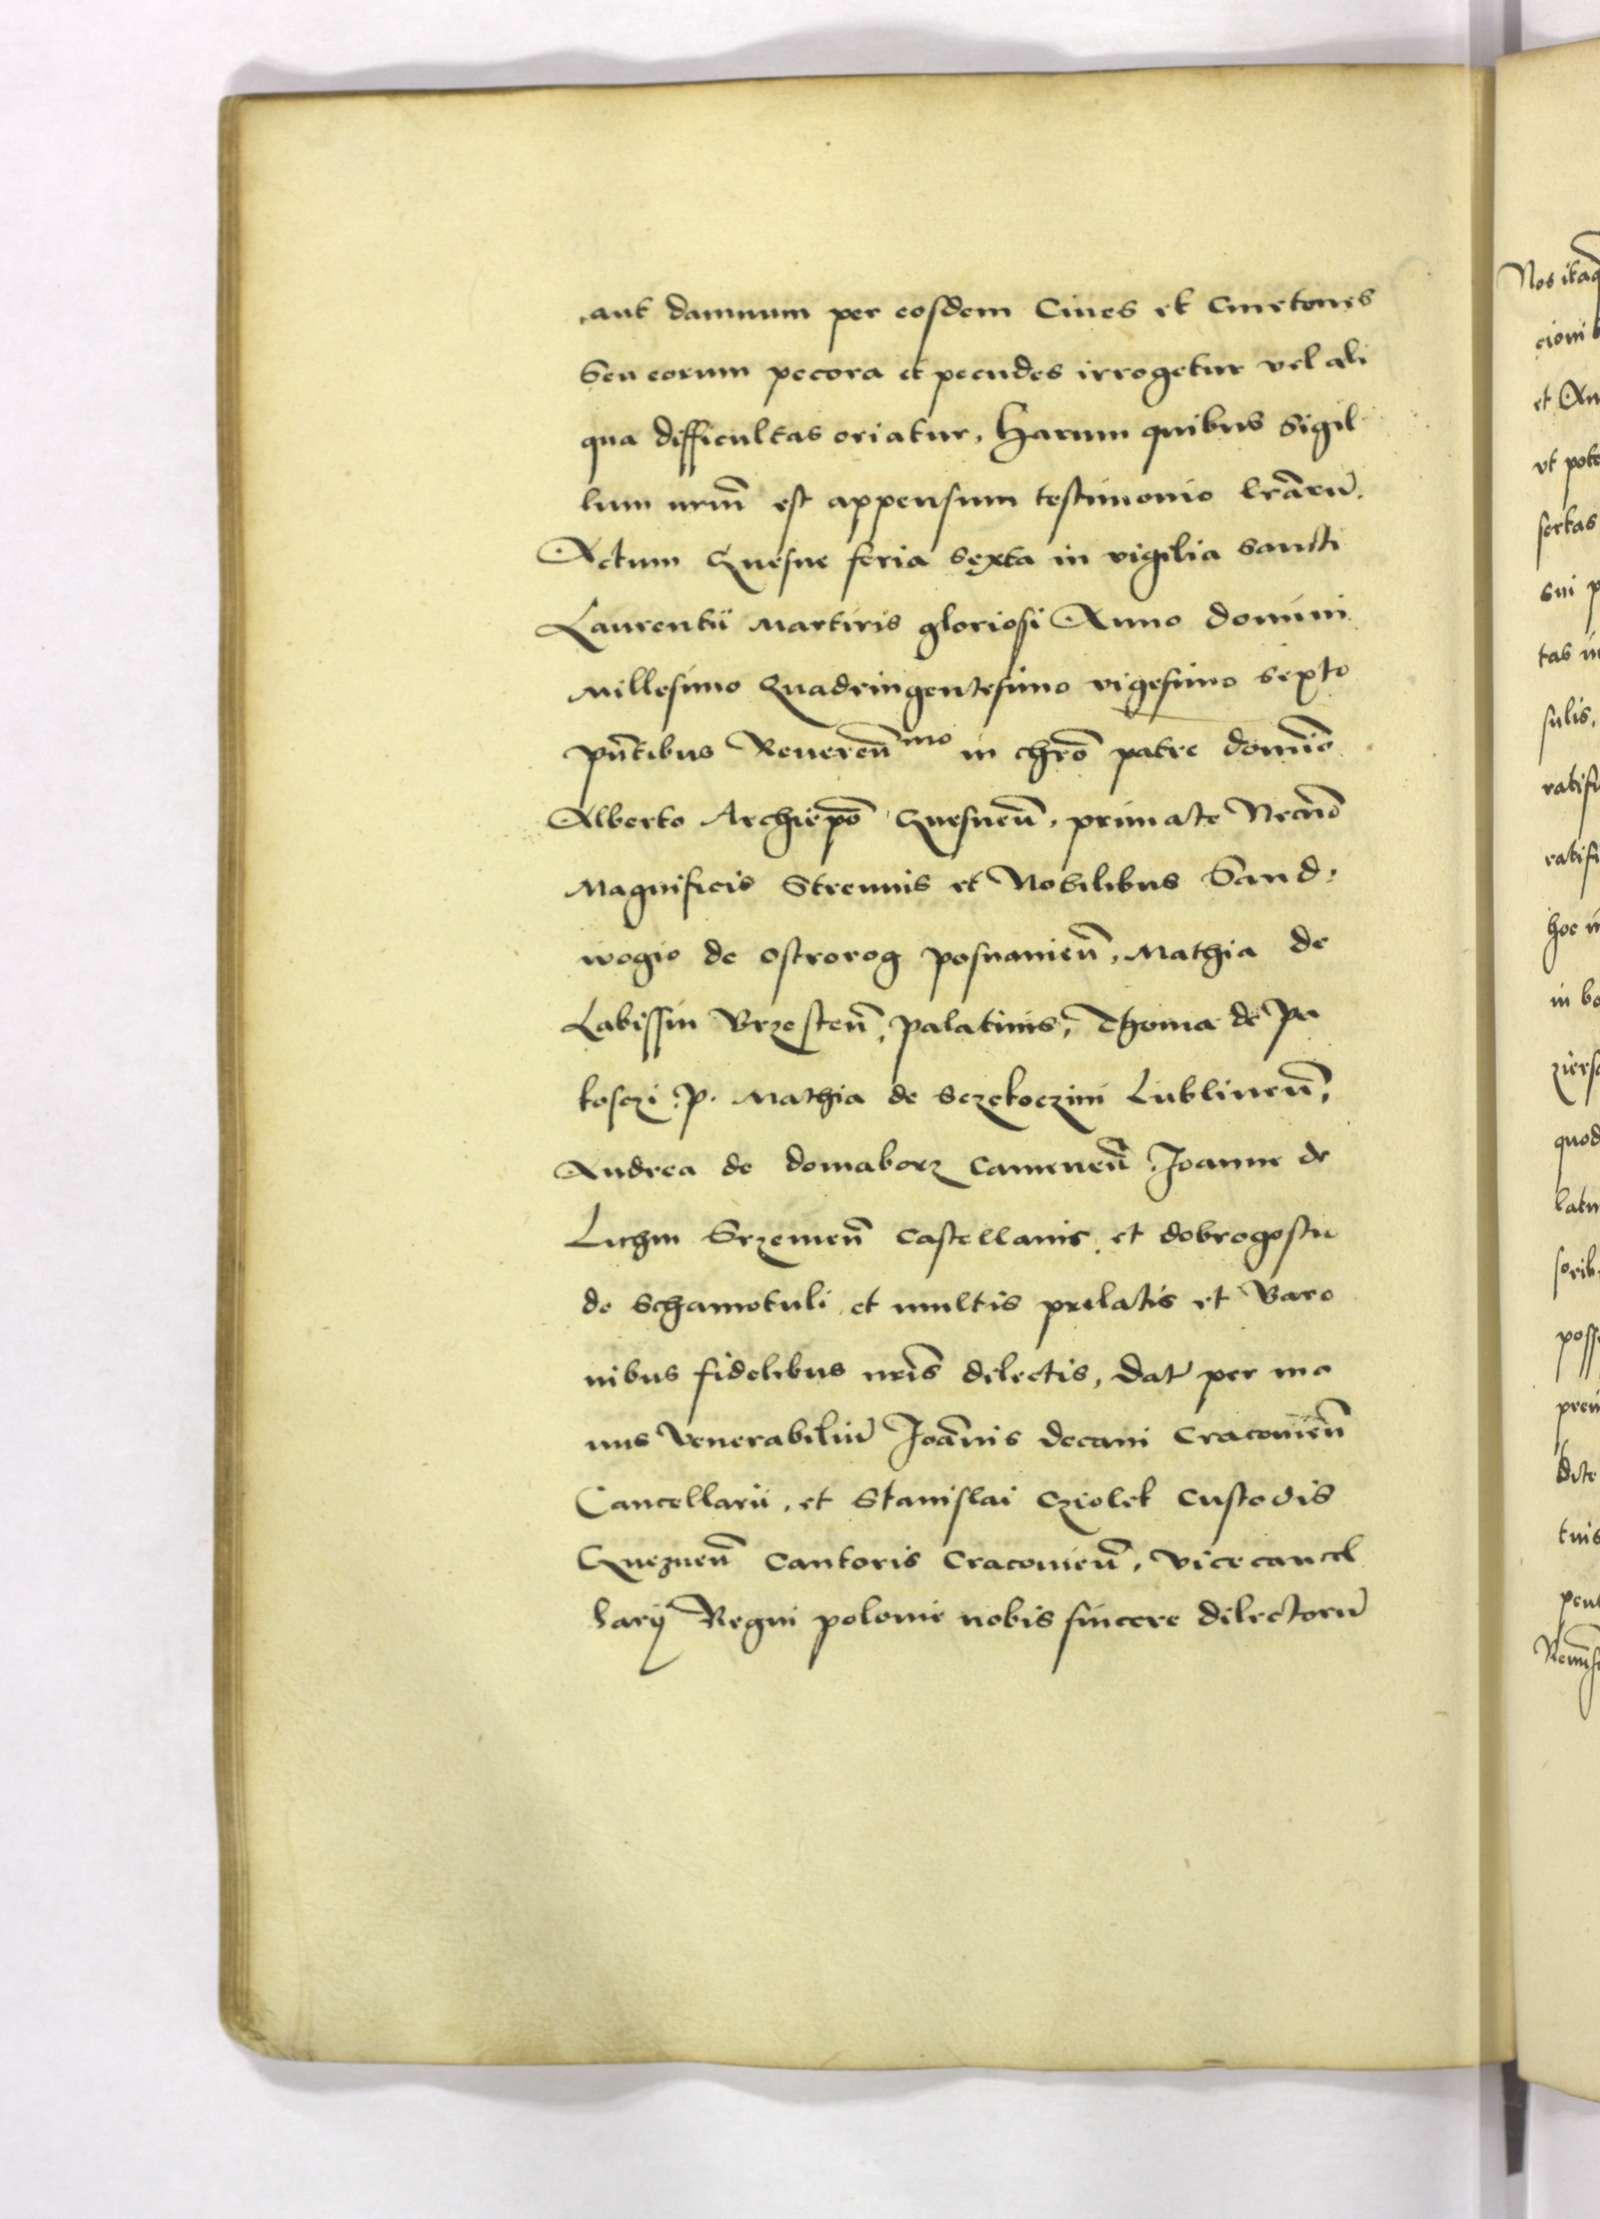 aut damnum per eosdem Ciues et Cmetones
Seu eorum pecora et pecudes irrogetur vel ali
qua difficultas oriatur, Harum quibus Sigil
lum nrm̃ est appensum testimonio lrãrũ.
Actum Gnesne feria sexta in vigilia sancti
Laurentii Martiris gloriosi Anno domini
Millesimo Quadringentesimo vigesimo sexto
pñtibus Reuereñmo in chrõ patre domĩo
Alberto Archiepõ Gnesneñ, primate Necnõ
Magnificis Strenuis et Nobilibus Sand
wogio de Ostrorog posnanieñ, Mathia de
Labissin Brzesteñ, palatinis, Thoma de Pa
koszi .p. Mathia de Sczekoczini Lublineñ,
Andrea de domaborz Cameneñ Joanne de
Lichin Srzemeñ Castellanis, et dobrogostu
de Schamotuli et multis prelatis et Baro
nibus fidelibus nr̃is dilectis, dat̃ per ma
nus Venerabiliũ Joãnis decani Cracouieñ
Cancellarii, et Stanislai Cziolek Custodis
Gnezneñ Cantoris Cracouieñ, vicecancel
larij Regni polonie nobis sincere dilectorũ
Nos itaq
cioni
et An
vt pote
sertas
sui p
tas in
sulis,
ratifi
ratifi
hoc in
in bo
ziers
quod
latu
sorib
posse
prem
dite
tuis